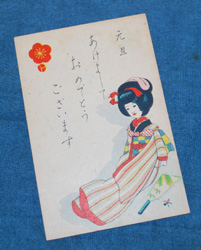 元旦
あけまして
おめでとう
ございます